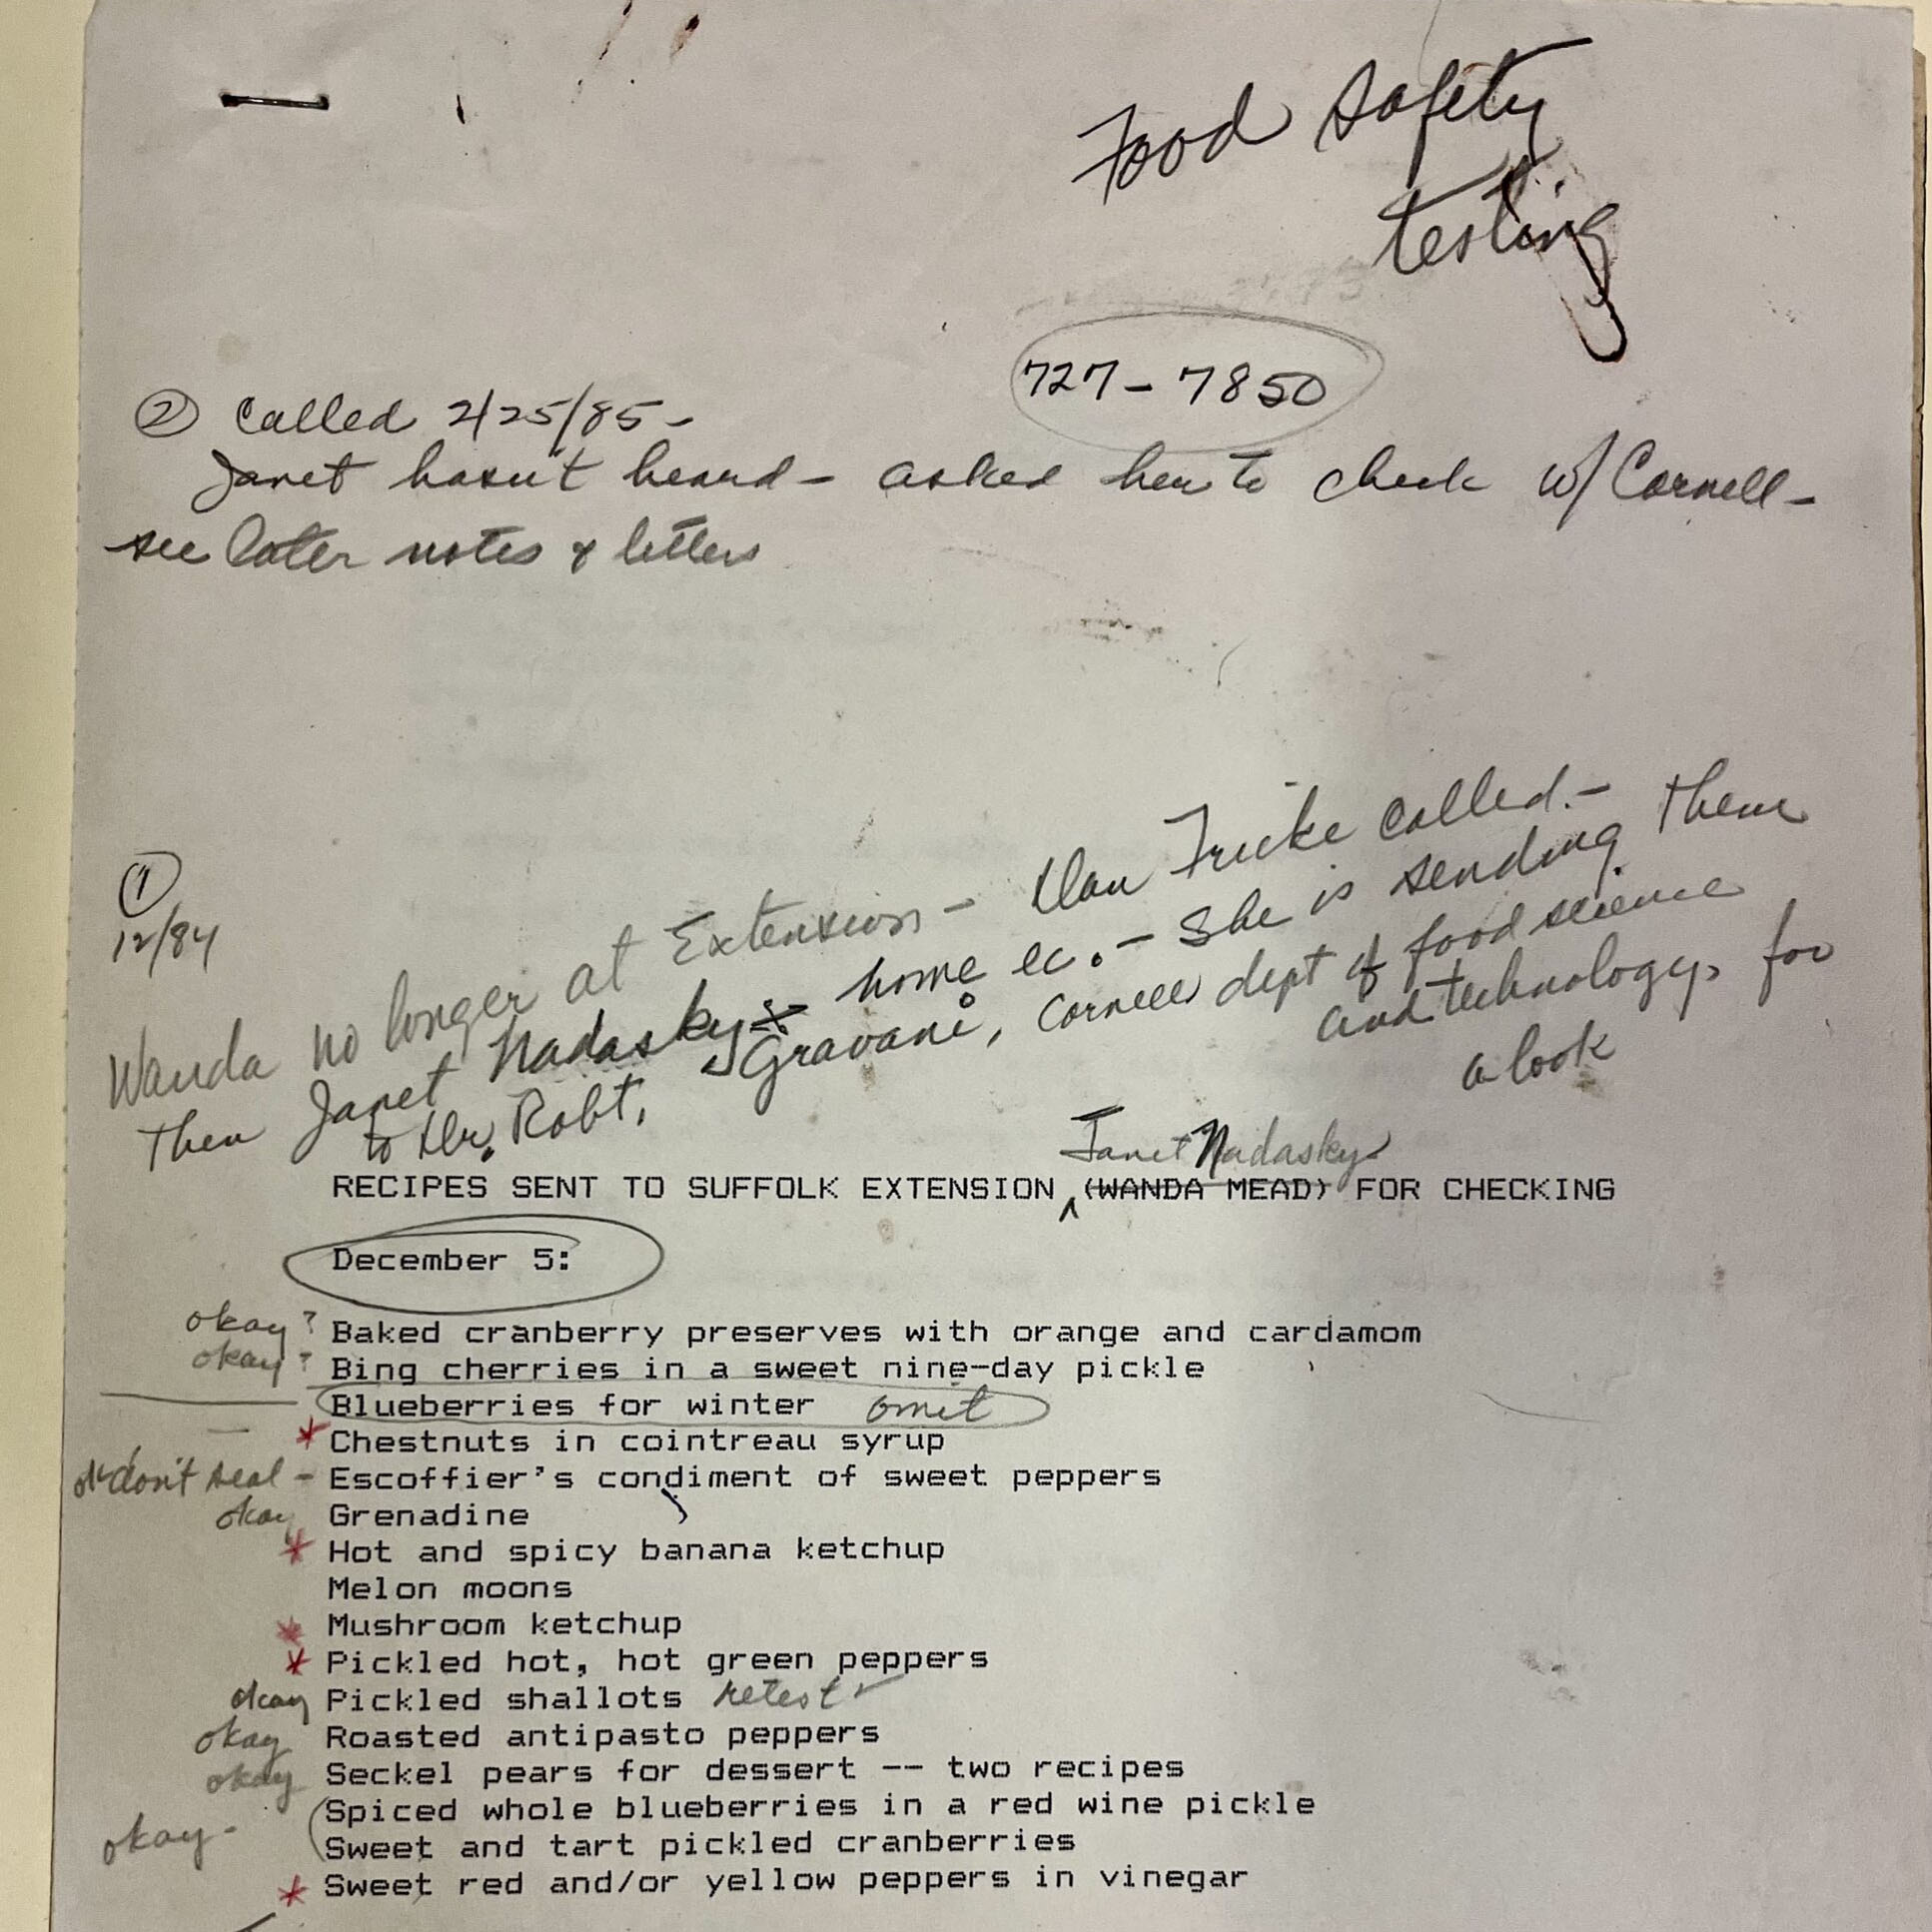 Food safety
testing
727-7850
② Called 2/25/85-
Janet hasn't heard- asked her to check w/ Cornell-
see later notes & letters
①
12/84
Wanda no longer at Extension- Dan Fricke called.-
Then Janet Nadasky home ec.- She is sending them
to Dr. Robt. Gravani, Cornell dept of food science
and technology, for
a look
Janet Nadasky
RECIPES SENT TO SUFFOLK EXTENSION (WANDA MEAD) FOR CHECKING
December 5:
okay? Baked cranberry preserves with orange and cardamom
okay? Bing cherries in a sweet nine-day pickle
Blueberries for winter omit
* Chestnuts in cointreau syrup
ok don't seal - Escoffier's condiment of sweet peppers
okay Grenadine
* Hot and spicy banana ketchup
Melon moons
* Mushroom ketchup
* Pickled hot, hot green peppers
okay Pickled shallots retest ✓
okay Roasted antipasto peppers
okay Seckel pears for dessert -- two recipes
okay- (Spiced whole blueberries in a red wine pickle
Sweet and tart pickled cranberries
* Sweet red and/or yellow peppers in vinegar